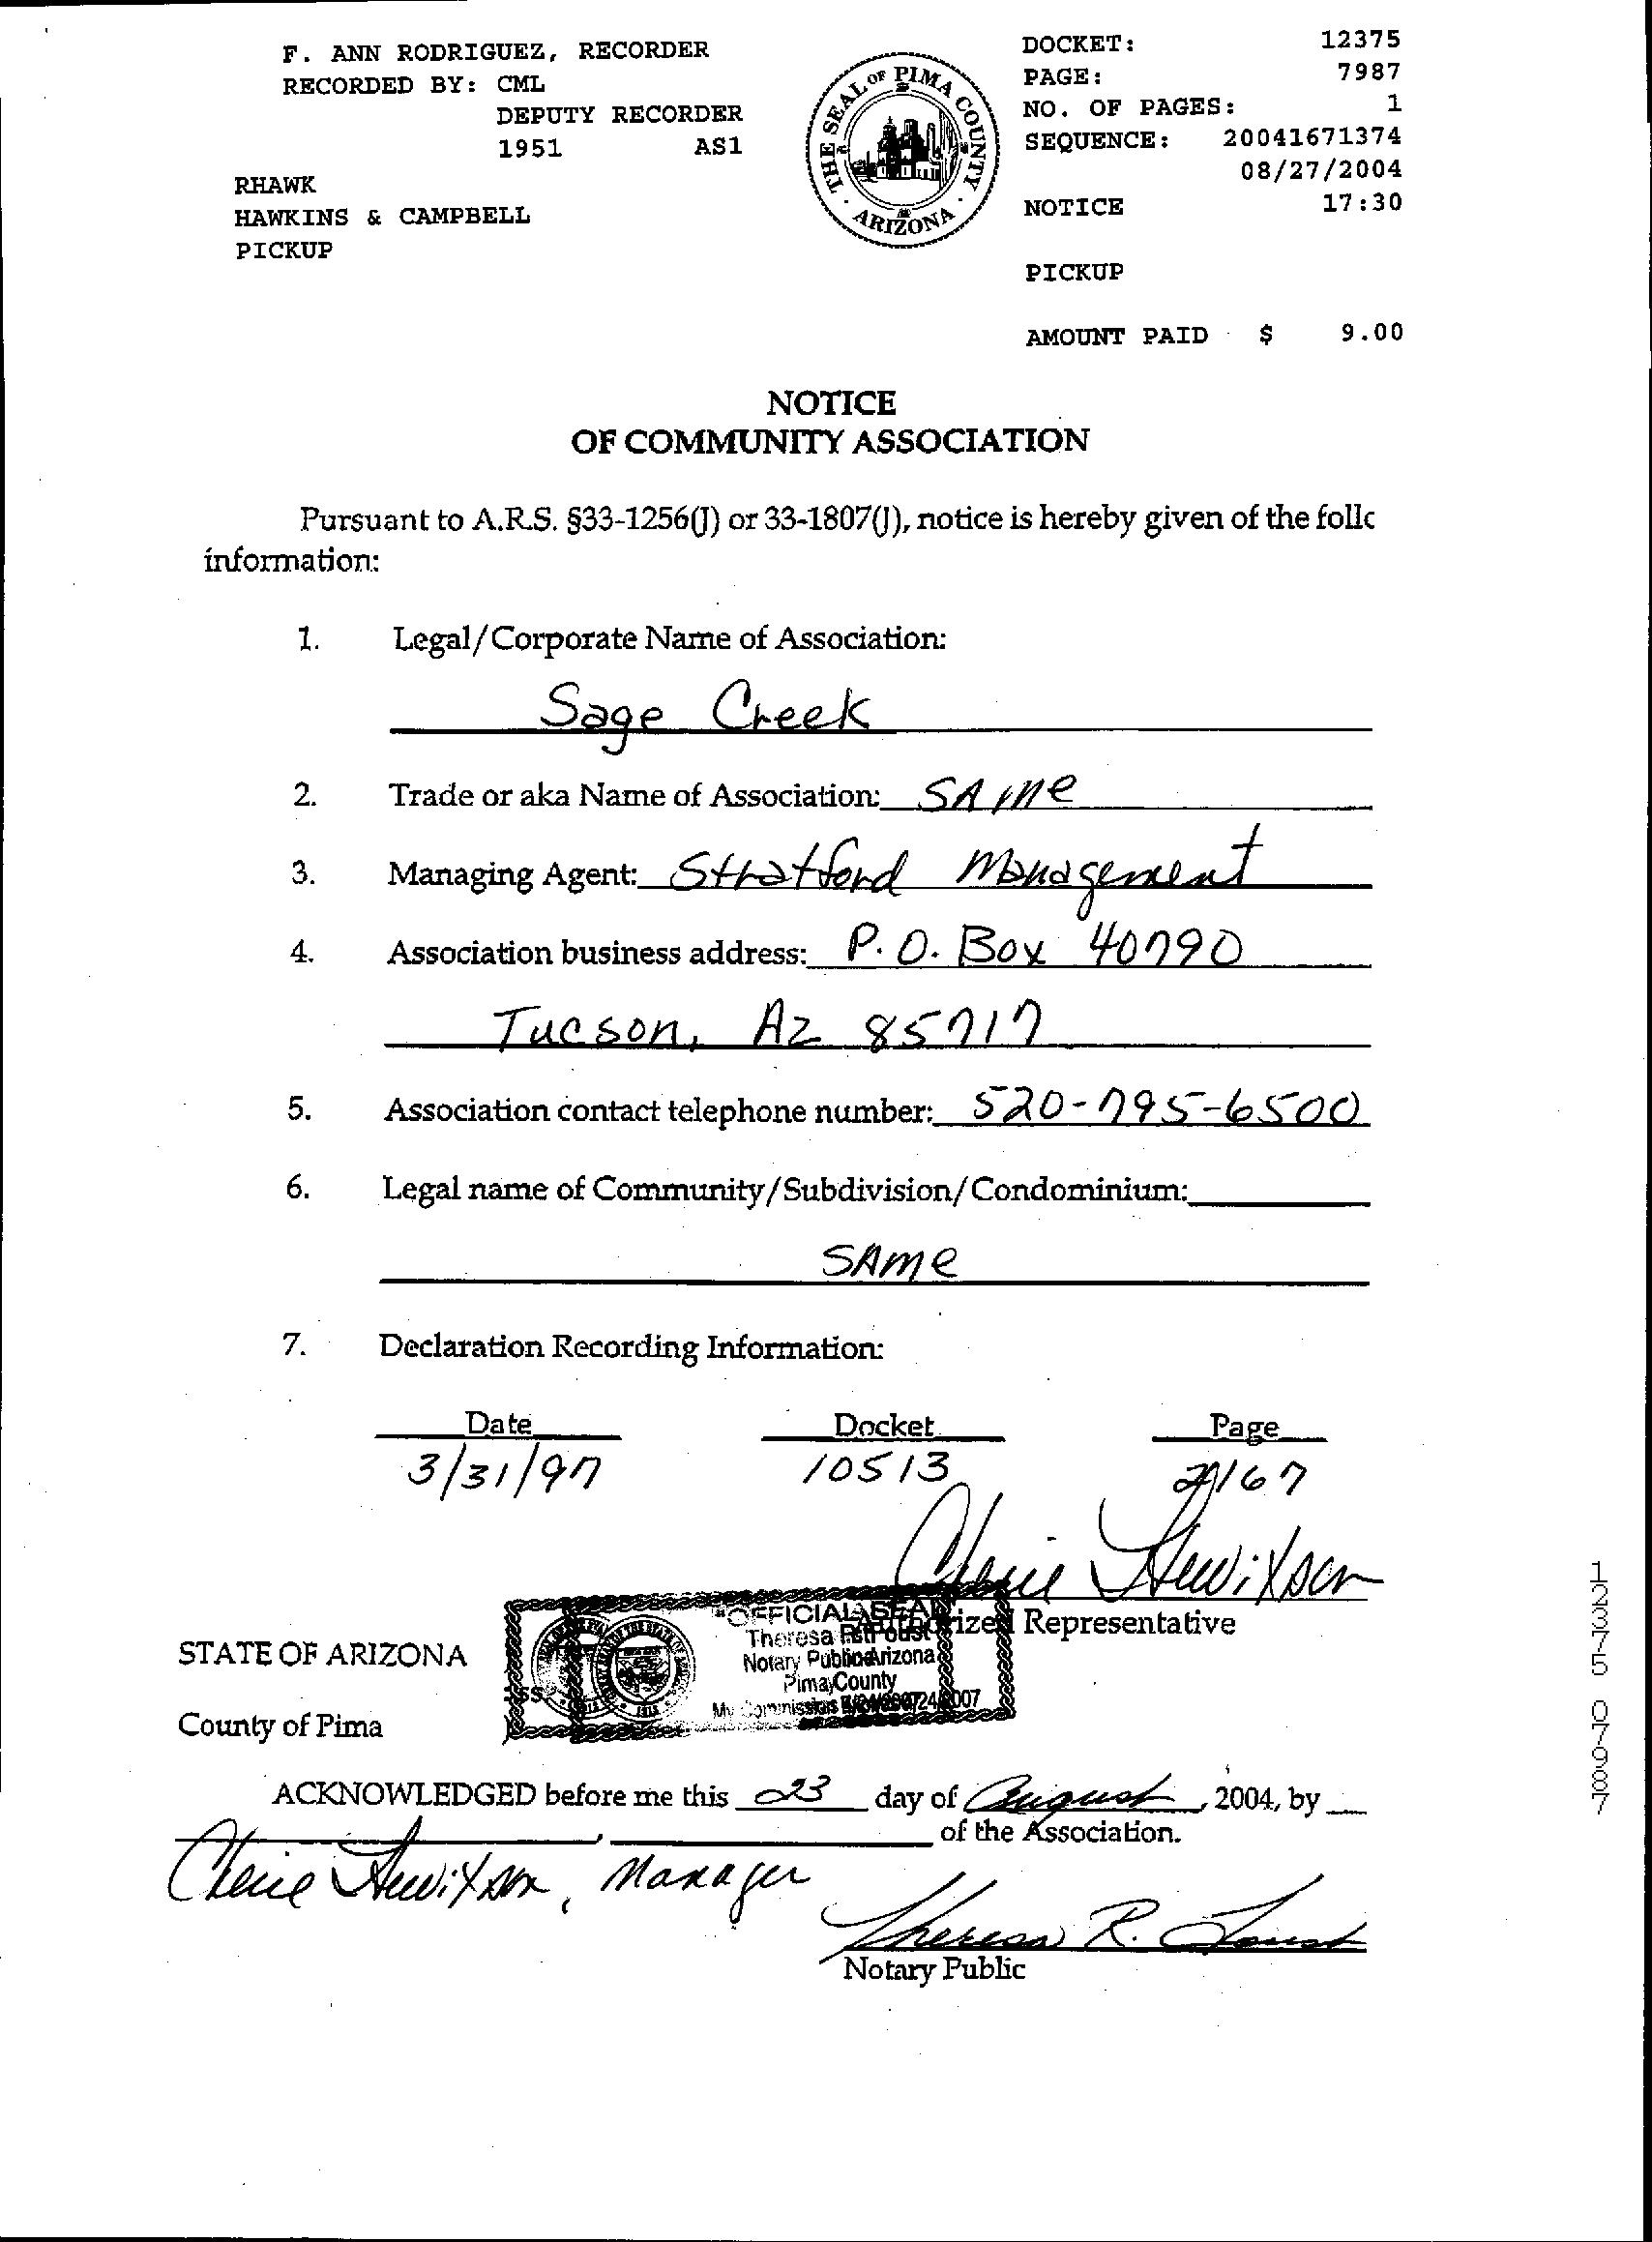 F. ANN RODRIGUEZ, RECORDER
RECORDED BY: CML
DEPUTY RECORDER
1951 AS1
RHAWK
HAWKINS & CAMPBELL
PICKUP
THE SEAL OF PIMA COUNTY
ARIZONA
DOCKET: 12375
PAGE: 7987
NO. OF PAGES: 1
SEQUENCE: 20041671374
08/27/2004
NOTICE 17:30
PICKUP
AMOUNT PAID $ 9.00
NOTICE
OF COMMUNITY ASSOCIATION
Pursuant to A.R.S. §33-1256(J) or 33-1807(J), notice is hereby given of the follc
information:
1. Legal/Corporate Name of Association:
Sage Creek
2. Trade or aka Name of Association: SAme
3. Managing Agent: Stratford Management
4. Association business address: P.O. Box 40790
Tucson, Az 85717
5. Association contact telephone number: 520-795-6500
6. Legal name of Community/Subdivision/Condominium:
SAme
7. Declaration Recording Information:
Date Docket Page
3/31/97 10513 167
Cherie
Representative
"OFFICIAL SEAL"
Theresa
Notary Public Arizona
Pima County
My Commission
STATE OF ARIZONA
County of Pima
ACKNOWLEDGED before me this 23 day of August, 2004, by
of the Association.
Cherie , Manager
Theresa R. Foust
Notary Public
12375 07987